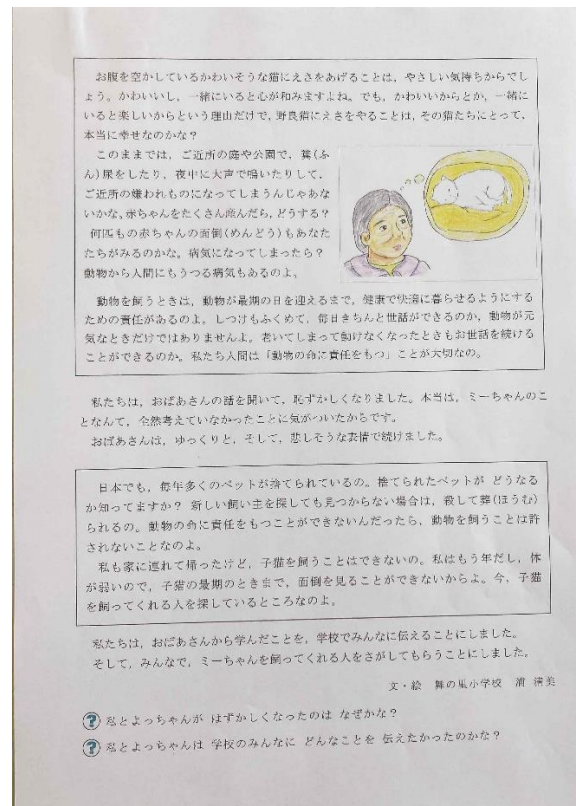 お腹を空かしているかわいそうな猫にえさをあげることは，やさしい気持ちからでし
ょう。かわいいし，一緒にいると心が和みますよね。でも，かわいいからとか，一緒に
いると楽しいからという理由だけで，野良猫にえさをやることは，その猫たちにとって，
本当に幸せなのかな？
このままでは，ご近所の庭や公園で，糞(ふ
ん)尿をしたり，夜中に大声で鳴いたりして，
ご近所の嫌われものになってしまうんじゃあな
いかな。赤ちゃんをたくさん産んだら，どうする？
何匹もの赤ちゃんの面倒(めんどう)もあなた
たちがみるのかな。病気になってしまったら？
動物から人間にもうつる病気もあるのよ。
動物を飼うときは，動物が最期の日を迎えるまで，健康で快適に暮らせるようにする
ための責任があるのよ。しつけもふくめて，毎日きちんと世話ができるのか，動物が元
気なときだけではありませんよ。老いてしまって動けなくなったときもお世話を続ける
ことができるのか。私たち人間は「動物の命に責任をもつ」ことが大切なの。
私たちは，おばあさんの話を聞いて，恥ずかしくなりました。本当は，ミーちゃんのこ
となんて，全然考えていなかったことに気がついたからです。
おばあさんは，ゆっくりと，そして，悲しそうな表情で続けました。
日本でも，毎年多くのペットが捨てられているの。捨てられたペットが どうなる
か知ってますか？ 新しい飼い主を探しても見つからない場合は，殺して葬(ほうむ)
られるの。動物の命に責任をもつことができないんだったら，動物を飼うことは許
されないことなのよ。
私も家に連れて帰ったけど，子猫を飼うことはできないの。私はもう年だし，体
が弱いので，子猫の最期のときまで，面倒を見ることができないからよ。今，子猫
を飼ってくれる人を探しているところなのよ。
私たちは，おばあさんから学んだことを，学校でみんなに伝えることにしました。
そして，みんなで，ミーちゃんを飼ってくれる人をさがしてもらうことにしました。
文・絵 舞の里小学校 浦 清美
? 私とよっちゃんが はずかしくなったのは なぜかな？
? 私とよっちゃんは 学校のみんなに どんなことを 伝えたかったのかな？